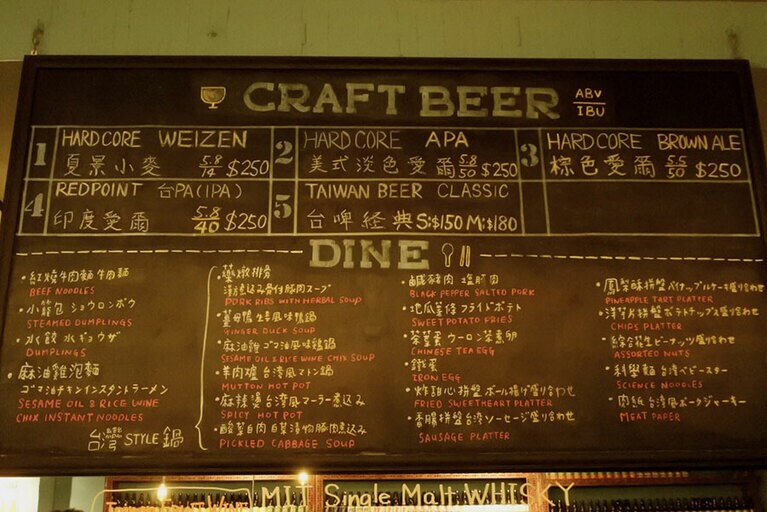 CRAFT BEER ABV IBU
1 HARDCORE WEIZEN
夏景小麥 5.8 14 $250
2 HARDCORE APA
美式淡色愛爾 5.8 50 $250
3 HARDCORE BROWN ALE
棕色愛爾 5.5 50 $250
4 REDPOINT 台PA(IPA)
印度愛爾 5.8 40 $250
5 TAIWAN BEER CLASSIC
台啤経典 S:$150 M:$180
DINE
・紅燒牛肉麵 牛肉麵
BEEF NOODLES
・小籠包 ショウロンポウ
STEAMED DUMPLINGS
・水餃 水ギョウザ
DUMPLINGS
・麻油雞泡麵
ゴマ油チキンインスタントラーメン
SESAME OIL & RICE WINE
CHIX INSTANT NOODLES
台湾 STYLE 鍋
煮込み骨付豚肉スープ
PORK RIBS WITH HERBAL SOUP
・薑母鴨 生姜風味鴨鍋
GINGER DUCK SOUP
・麻油雞 ゴマ油風味鶏鍋
SESAME OIL & RICE WINE CHIX SOUP
・羊肉爐 台湾風マトン鍋
MUTTON HOT POT
・麻辣燙 台湾風マーラー煮込み
SPICY HOT POT
・酸菜白肉 白菜漬物豚肉煮込み
PICKLED CABBAGE SOUP
・鹹豬肉 塩豚肉
BLACK PEPPER SALTED PORK
・地瓜薯條 フライドポテト
SWEET POTATO FRIES
・茶葉蛋 ウーロン茶煮卵
CHINESE TEA EGG
・鐵蛋
IRON EGG
・炸甜心拼盤 ボール揚げ盛り合わせ
FRIED SWEETHEART PLATTER
・香腸拼盤 台湾ソーセージ盛り合わせ
SAUSAGE PLATTER
・鳳梨酥拼盤 パイナップルケーキ盛り合わせ
PINEAPPLE TART PLATTER
・洋芋片拼盤 ポテトチップス盛り合わせ
CHIPS PLATTER
・綜合花生 ピーナッツ盛り合わせ
ASSORTED NUTS
・科學麵 台湾ベビースター
SCIENCE NOODLES
・肉紙 台湾風ポークジャーキー
MEAT PAPER
MIT Single Malt WHISKY